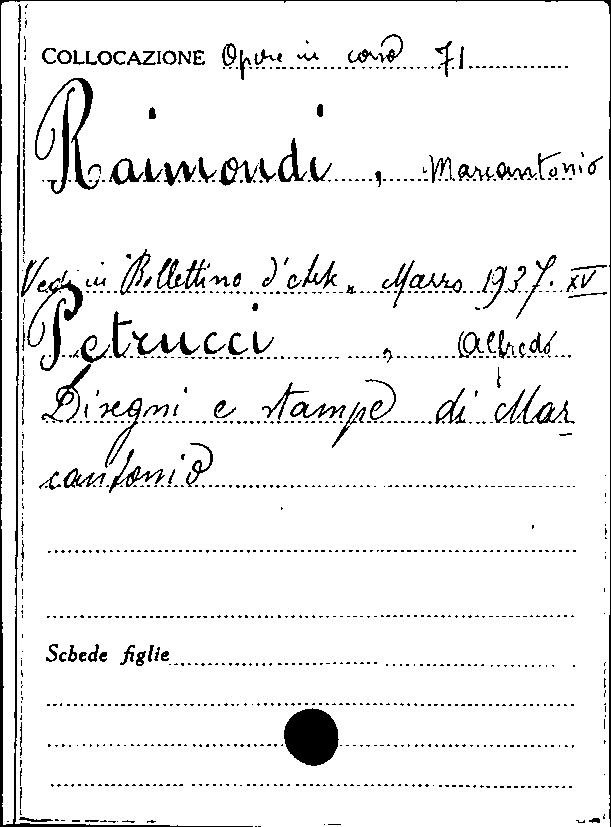 COLLOCAZIONE Opere in corso 71
Raimondi, Marcantonio
Vedi in Bollettino d'Arte. Marzo 1937. XV
Petrucci, Alfredo
Disegni e stampe di Mar
cantonio
Schede figlie